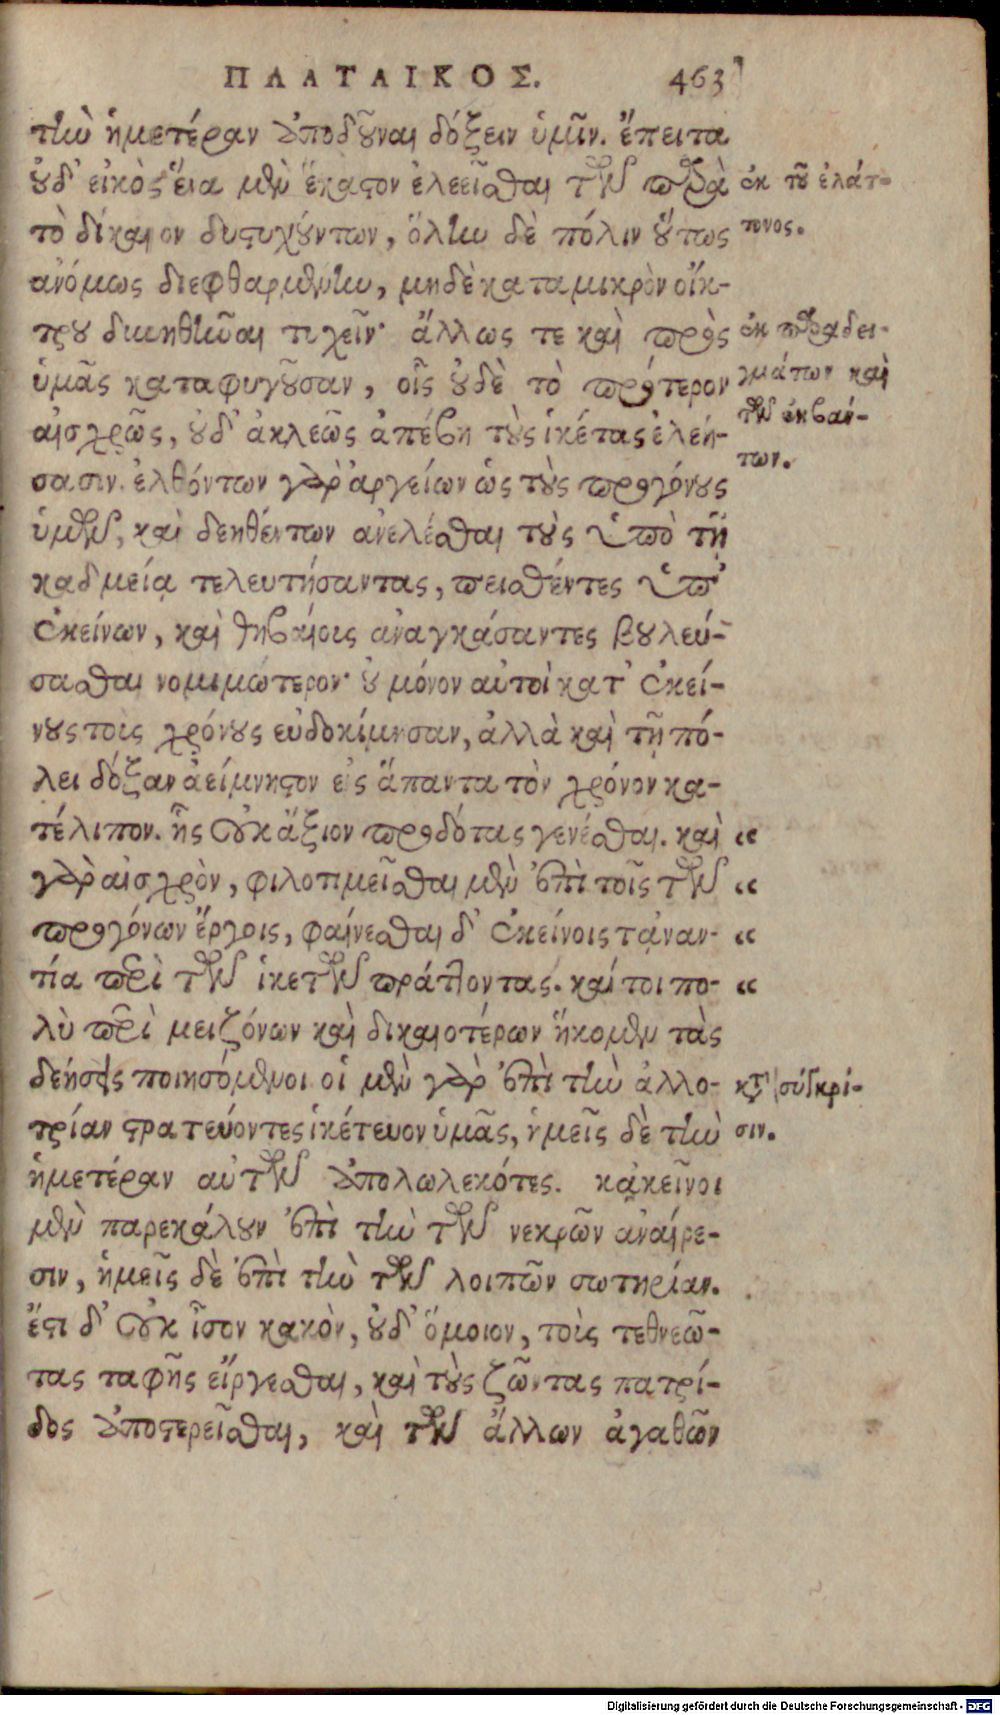 ΠΛΑΤΑΙΚΟΣ. 463
τὴν ἡμετέραν ἀποδοῦναι δόξειν ὑμῖν. ἔπειτα
οὐδ' εἰκὸς ἕνα μὲν ἕκαστον ἐλεεῖσθαι τῶν παρὰ
τὸ δίκαιον δυστυχούντων, ὅλην δὲ πόλιν οὕτως
ἀνόμως διεφθαρμένην, μηδὲ κατα μικρὸν οἴκ-
του δυνηθῆναι τυχεῖν· ἄλλως τε καὶ πρὸς
ὑμᾶς καταφυγοῦσαν, οἷς οὐδὲ τὸ πρότερον
αἰσχρῶς, οὐδ' ἀκλεῶς ἀπέβη τοὺς ἱκέτας ἐλεή-
σασιν. ἐλθόντων γὰρ ἀργείων ὡς τοὺς προγόνους
ὑμῶν, καὶ δεηθέντων ἀνελέσθαι τοὺς ὑπὸ τῇ
καδμείᾳ τελευτήσαντας, πεισθέντες ὑπ'
ἐκείνων, καὶ θηβαίοις ἀναγκάσαντες βουλεύ-
σασθαι νομιμώτερον· οὐ μόνον αὐτοὶ κατ' ἐκεί-
νους τοὺς χρόνους εὐδοκίμησαν, ἀλλὰ καὶ τῇ πό-
λει δόξαν ἀείμνηστον εἰς ἅπαντα τὸν χρόνον κα-
τέλιπον. ἧς οὐκ ἄξιον προδότας γενέσθαι. καὶ «
γὰρ αἰσχρὸν, φιλοτιμεῖσθαι μὲν ἐπὶ τοῖς τῶν «
προγόνων ἔργοις, φαίνεσθαι δ' ἐκείνοις τἀναν- «
τία περὶ τῶν ἱκετῶν πράττοντας. καίτοι πο- «
λὺ περὶ μειζόνων καὶ δικαιοτέρων ἥκομεν τὰς
δεήσεις ποιησόμενοι οἱ μὲν γὰρ ἐπὶ τὴν ἀλλο-
τρίαν στρατεύοντες ἱκέτευον ὑμᾶς, ἡμεῖς δὲ τὴν
ἡμετέραν αὐτῶν ἀπολωλεκότες. κἀκεῖνοι
μὲν παρεκάλουν ἐπὶ τὴν τῶν νεκρῶν ἀναίρε-
σιν, ἡμεῖς δὲ ἐπὶ τὴν τῶν λοιπῶν σωτηρίαν.
ἔστι δ' οὐκ ἴσον κακὸν, οὐδ' ὅμοιον, τοὺς τεθνεῶ-
τας ταφῆς εἴργεσθαι, καὶ τοὺς ζῶντας πατρί-
δος ἀποστερεῖσθαι, καὶ τῶν ἄλλων ἀγαθῶν
ἐκ τοῦ ἐλάτ-
τονος.
ἐκ παραδει-
γμάτων καὶ
τῶν ἐκβάν-
των.
κτ' σύγκρι-
σιν.
Digitalisierung gefördert durch die Deutsche Forschungsgemeinschaft - DFG